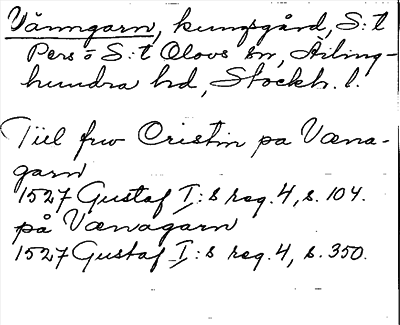 Vänngarn, kungsgård, S:t
Pers o S:t Olovs sn, Ärling-
hundra hd, Stockh. l.
Tiil frw Cristin pa Væna-
garn
1527 Gustaf I:s reg. 4, s. 104.
på Vænagarn
1527 Gustaf I:s reg. 4, s. 350.